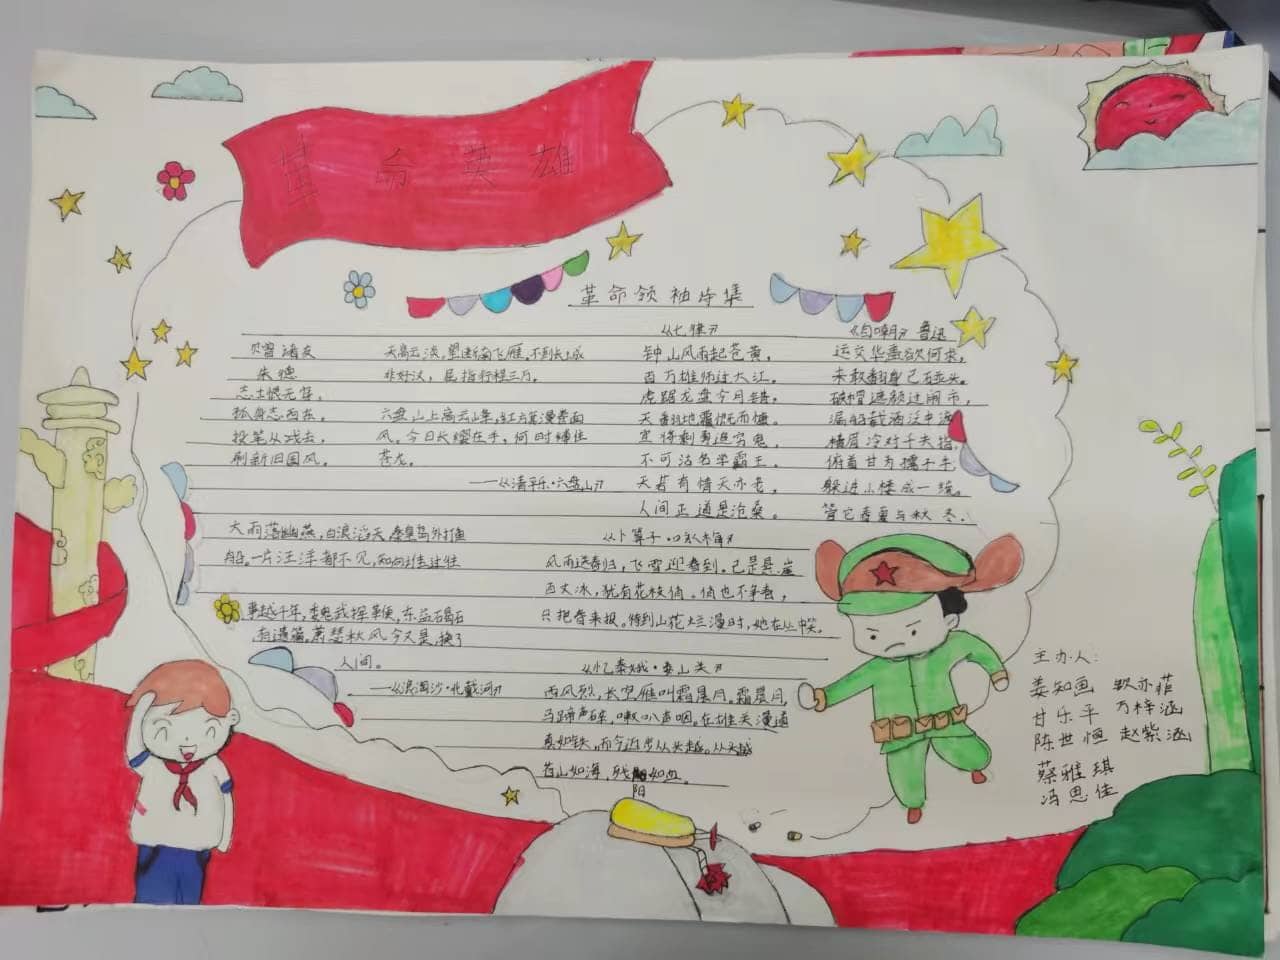 革命英雄
革命领袖诗集
赠诸友
朱德
志士恨无穷,
孤身走西东。
投笔从戎去,
刷新旧国风。
天高云淡,望断南飞雁,不到长城
非好汉,屈指行程二万。
六盘山上高峰,红旗漫卷西
风。今日长缨在手,何时缚住
苍龙。
——《清平乐·六盘山》
《七律》
钟山风雨起苍黄,
百万雄师过大江。
虎踞龙盘今胜昔,
天翻地覆慨而慷。
宜将剩勇追穷寇,
不可沽名学霸王。
天若有情天亦老,
人间正道是沧桑。
《自嘲》鲁迅
运交华盖欲何求,
未敢翻身已碰头。
破帽遮颜过闹市,
漏船载酒泛中流
横眉冷对千夫指,
俯首甘为孺子牛,
躲进小楼成一统,
管它春夏与秋冬.
大雨落幽燕,白浪滔天,秦皇岛外打鱼
船。一片汪洋都不见,知向谁边往
事越千年,魏武挥鞭,东临碣石
有遗篇,萧瑟秋风今又是,换了
人间。
——《浪淘沙·北戴河》
《卜算子·咏梅》
风雨送春归,飞雪迎春到。已是悬崖
百丈冰,犹有花枝俏。俏也不争春,
只把春来报。待到山花烂漫时,她在丛中笑,
《忆秦娥·娄山关》
西风烈,长空雁叫霜晨月。霜晨月,
马蹄声碎,喇叭声咽。在雄关漫道
真如铁,而今迈步从头越。从头越
苍山如海,残阳如血。
主办人:
姜知画 亦菲
甘乐平 万梓涵
陈世恒 赵紫涵
蔡雅琪
冯思佳